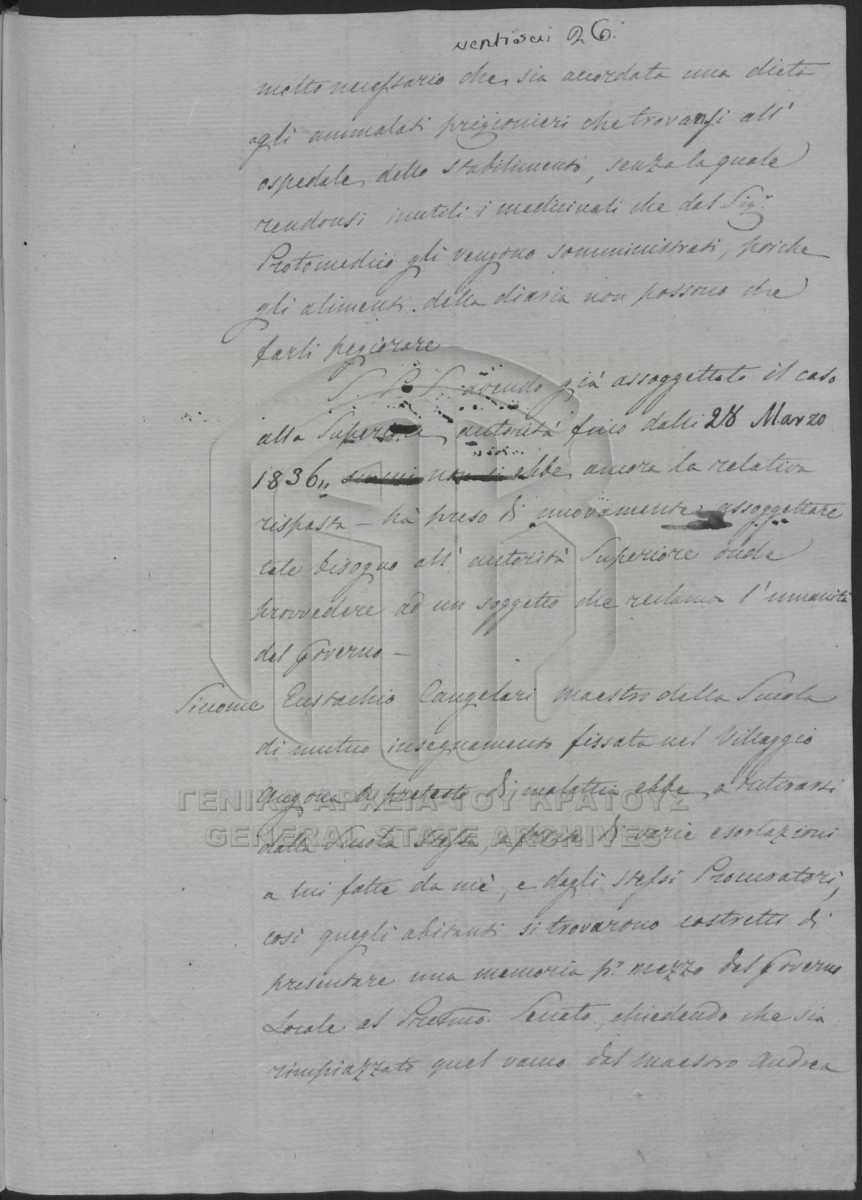 ventisei 26.
molto necessario che sia accordata una dieta
agli ammalati prigionieri che trovansi all'
ospedale dello stabilimento, senza la quale
rendonsi inutili i medicinali che dal Sigr.
Protomedico gli vengono somministrati, poiche
gli alimenti della diaria non possono che
farli pegiorare
avendo già assoggettato il caso
alla Superiore autorità fino dalli 28 Marzo
1836,, non si ebbe ancora la relativa
risposta – hà preso di nuovamente assoggettare
tale bisogno all' autorità Superiore onde
provvedere ad un soggetto che reclama l'umanità
del Governo –
Siccome Eustachio Cangelari maestro della Scuola
di mutuo insegnamento fissata nel Villaggio
pretesto di malattia ebbe a ritirarsi
dalla Scuola stessa, a forza di varie esortazioni
a lui fatte da mè, e dagli stessi Procuratori,
così quegli abitanti si trovarono costretti di
presentare una memoria pr. mezzo del Governo
Locale al Prestmo. Senato, chiedendo che sia
rimpiazzato quel vacuo dal maestro Andrea
ΓΕΝΙΚΑ ΑΡΧΕΙΑ ΤΟΥ ΚΡΑΤΟΥΣ
GENERAL STATE ARCHIVES